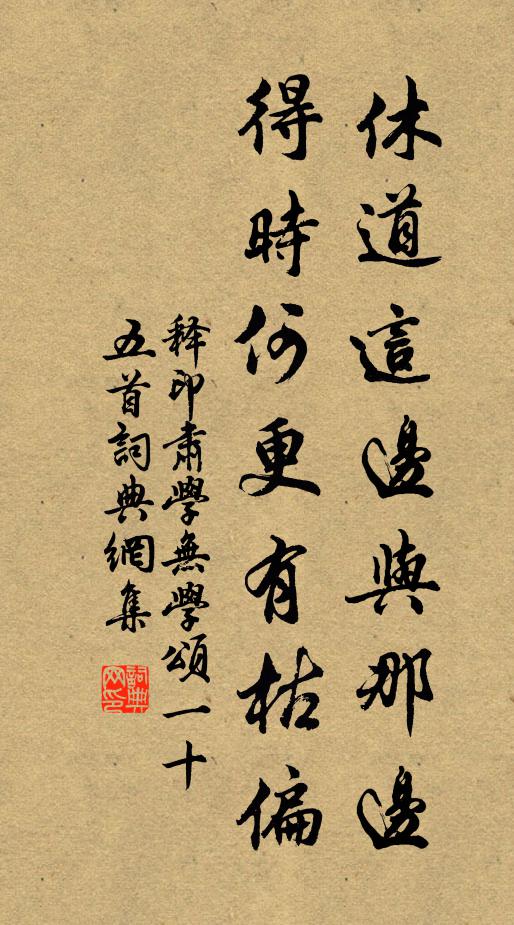 休道這邊與那邊
得時何更有枯偏
释印肅學無學頌一十
五首詞典網集
詞典网印